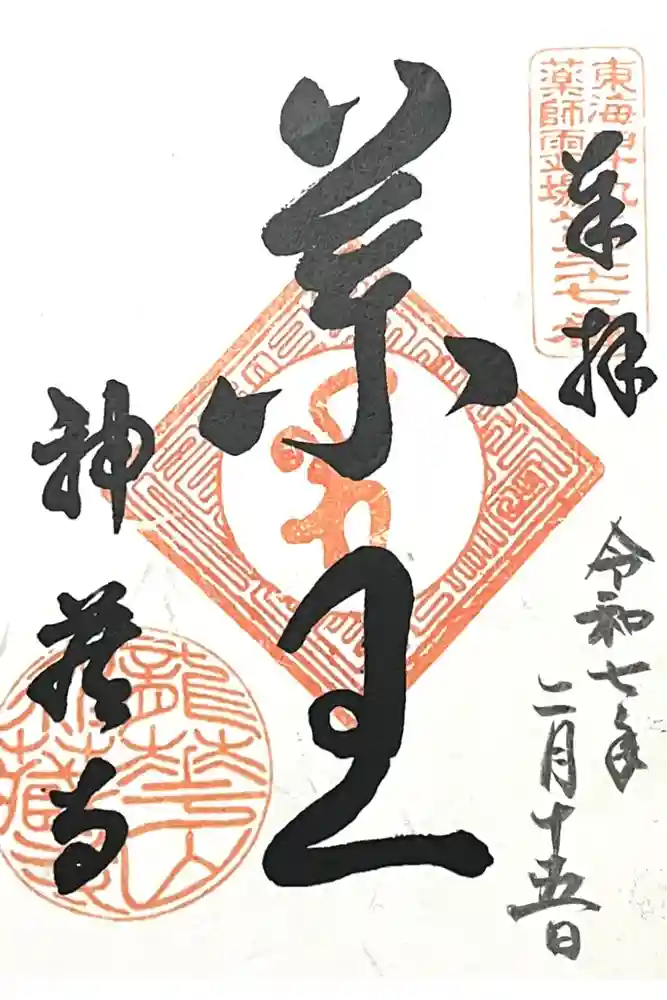 東海四十九
薬師霊場第二十七番
奉拝
令和七年
二月十五日
薬王
神蔵寺
龍華山
神蔵寺